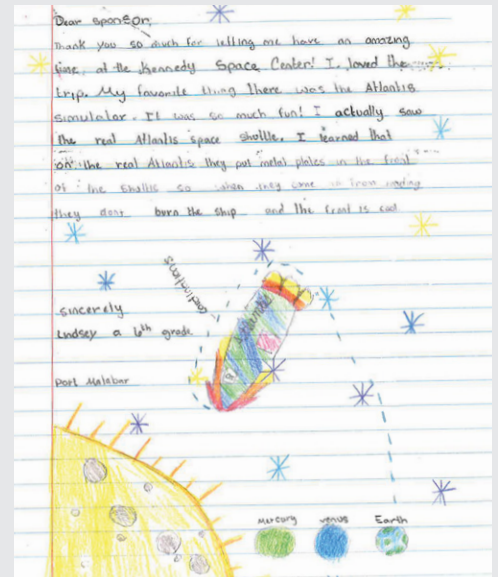 Dear sponsor,
Thank you so much for letting me have an amazing
time, at the Kennedy Space Center! I loved the
trip. My favorite thing there was the Atlantis
simulator. It was so much fun! I actually saw
the real Atlantis space shuttle. I learned that
on the real Atlantis they put metal plates in the front
of the shuttle so when they come in from
they dont burn the ship and the front is cool
sincerely
Lindsey a 6th grade
Port Malabar
Mercury venus Earth